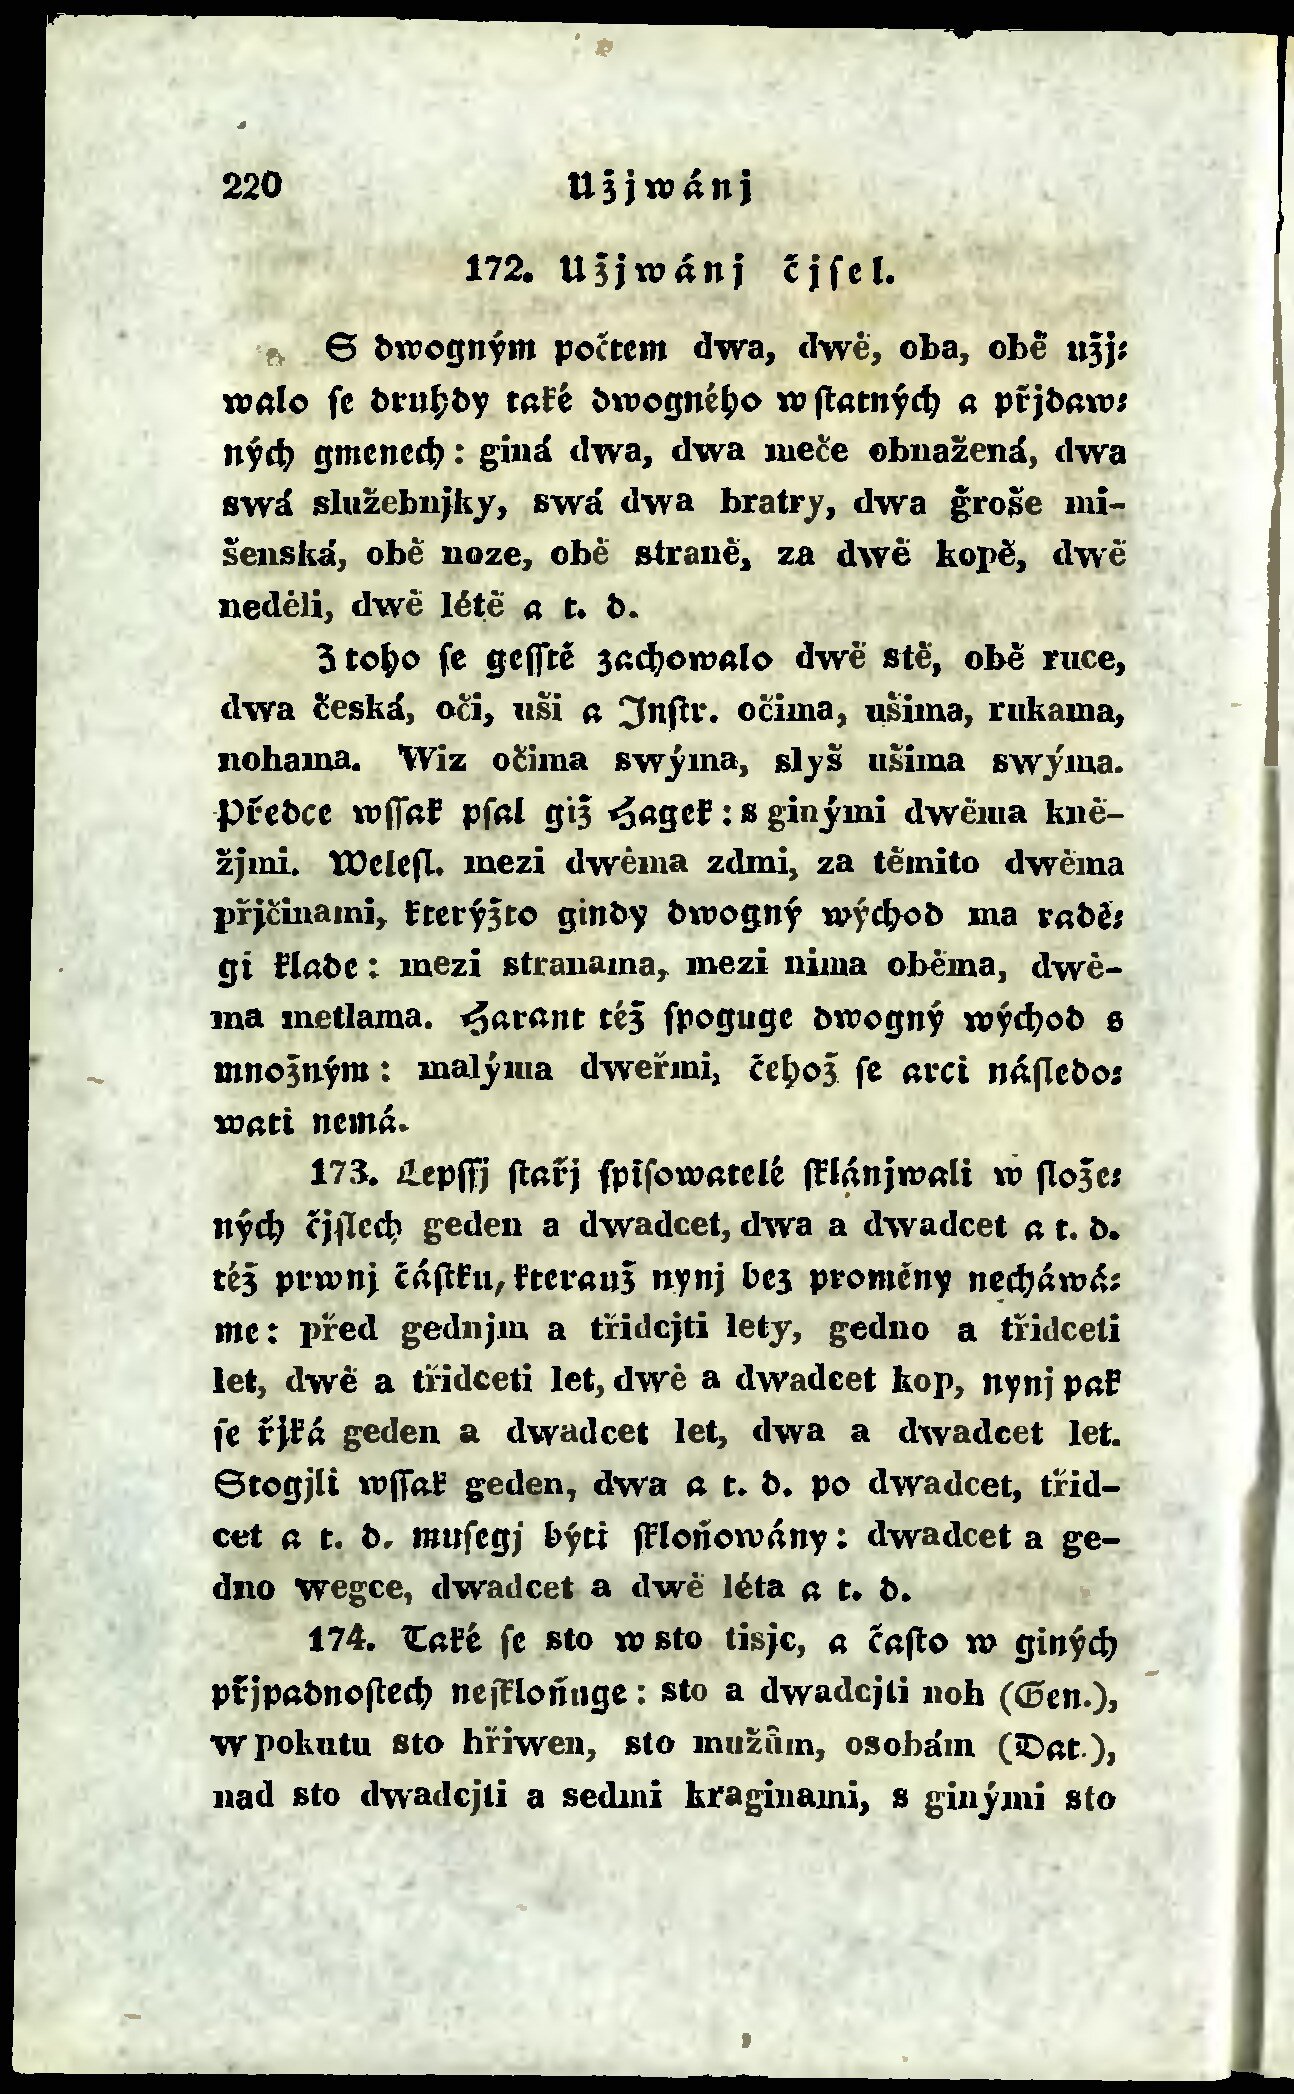 220 Užjwánj
172. Užjwánj čjſel.
S dwogným počtem dwa, dwě, oba, obě užj-
walo ſe druhdy také dwogného w ſtatných a přjdaw-
ných gmenech: giná dwa, dwa meče obnažená, dwa
swá služebnjky, swá dwa bratry, dwa ğroše mi-
šenská, obě noze, obě straně, za dwě kopě, dwě
neděli, dwě létě a t. d.
Z toho ſe geſſtě zachowalo dwě stě, obě ruce,
dwa česká, oči, uši a Inſtr. očima, ušima, rukama,
nohama. Wiz očima swýma, slyš ušima swýma.
Předce wſſak pſal giž Hagek: s ginými dwěma kně-
žjmi. Weleſl. mezi dwěma zdmi, za těmito dwěma
přjčinami, kterýžto gindy dwogný wýchod ma radě-
gi klade: mezi stranama, mezi nima oběma, dwě-
ma metlama. Harant též ſpoguge dwogný wýchod s
množným: malýma dweřmi, čehož ſe arci náſledo-
wati nemá.
173. Lepſſj ſtařj ſpiſowatelé ſklánjwali w ſlože-
ných čjſlech geden a dwadcet, dwa a dwadcet a t. d.
též prwnj částku, kterauž nynj bez proměny necháwá-
me: před gednjm a třidcjti lety, gedno a třidceti
let, dwě a třidceti let, dwě a dwadcet kop, nynj pak
ſe řjká geden a dwadcet let, dwa a dwadcet let.
Stogjli wſſak geden, dwa a t. d. po dwadcet, třid-
cet a t. d. muſegj býti ſkloňowány: dwadcet a ge-
dno wegce, dwadcet a dwě léta a t. d.
174. Také ſe sto w sto tisjc, a čaſto w giných
přjpadnoſtech neſkloňuge: sto a dwadcjti noh (Gen.),
w pokutu sto hřiwen, sto mužům, osobám (Dat.),
nad sto dwadcjti a sedmi kraginami, s ginými sto